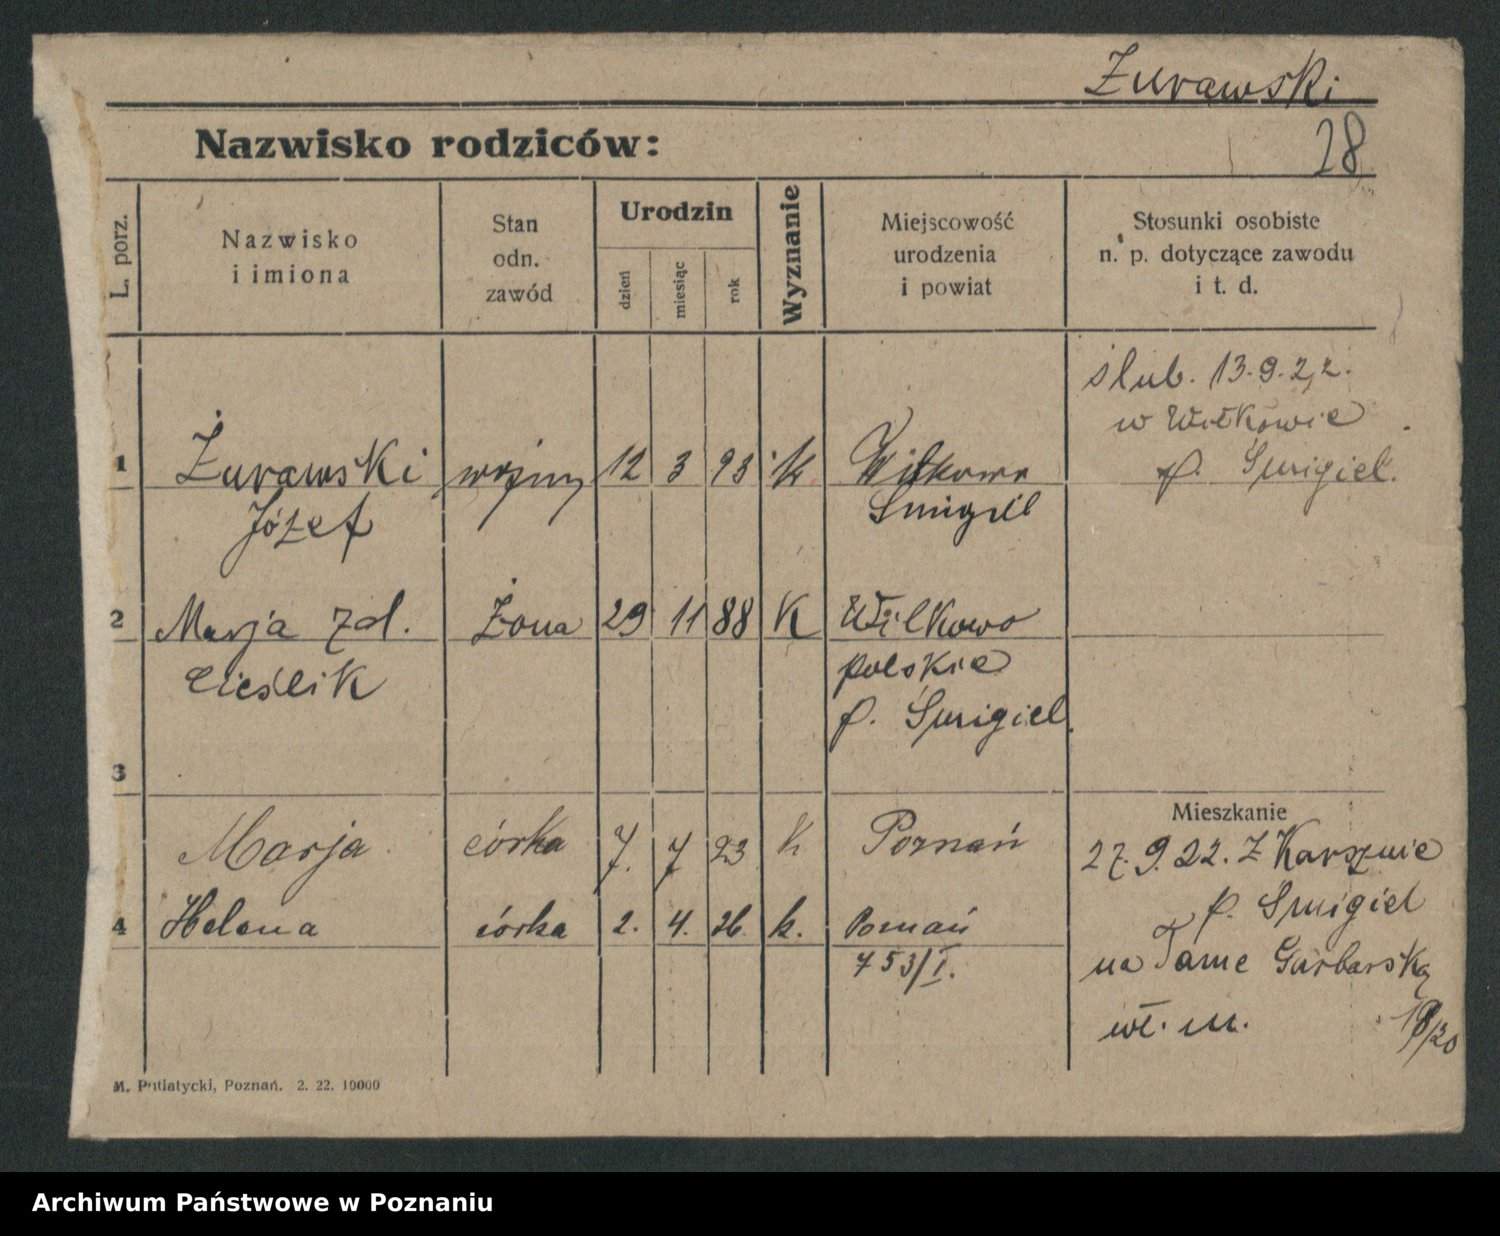 Żurawski
28
Nazwisko rodziców:
L. porz.
Nazwisko
i imiona
Stan
odn.
zawód
Urodzin
dzień
miesiąc
rok
Wyznanie
Miejscowość
urodzenia
i powiat
Stosunki osobiste
n. p. dotyczące zawodu
i t. d.
ślub. 13.9.22.
w Wilkowie
p. Śmigiel.
1 Żurawski 12 3 93 k Wilkowo
Józef Śmigiel
2 Marja zd. Żona 29 11 88 K Wilkowo
Cieślik polskie
p. Śmigiel
3
Mieszkanie
Marja córka 7. 7 23 k Poznań
27.9.22. z Karsznic
p. Śmigiel
4 Helena córka 2. 4. 26. k. Poznań
753/I.
na Tame Garbarską
wł. m. /30
M. Putiatycki, Poznań. 2. 22. 10000
Archiwum Państwowe w Poznaniu